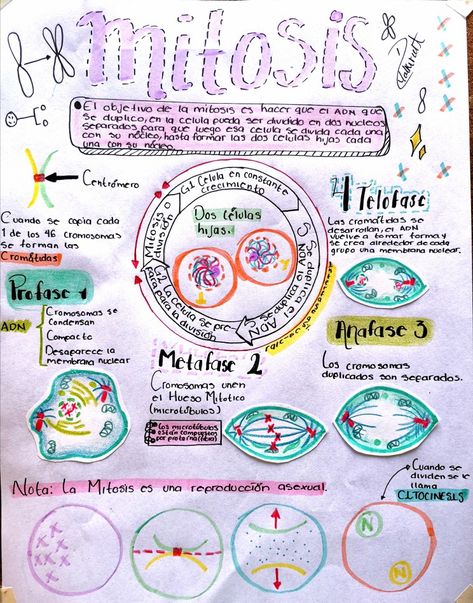 mitosis
El objetivo de la mitosis es hacer que el ADN que
se duplico, en la celula pueda ser dividido en dos nucleos
separados para que luego esa celula se divida cada una
con su nucleo, hasta formar las dos celulas hijas cada
una con su nucleo.
Centrómero
Cuando se copia cada
1 de los 46 cromosomas
se forman las
Cromátidas
G1 Celula en constante
crecimiento
S
Se duplica el ADN
G2 La celula se pre-
para para la división
Mitosis o
división
Dos células
hijas.
4 Telofase
Las cromátidas se
desarrollan, el ADN
vuelve a tomar forma y
se crea alrededor de cada
grupo una membrana nuclear.
Profase 1
ADN
Cromosomas se
Condensan
Compacto
Desaparece la
membrana nuclear
Metafase 2
Cromosomas unen
el Hueso Mitotico
(microtúbulos)
Los microtúbulos
están compuestos
por proteina (fibra)
Anafase 3
Los cromosomas
duplicados son separados.
Nota: La Mitosis es una reproducción asexual.
Cuando se
dividen se le
llama
CITOCINESIS
N
N